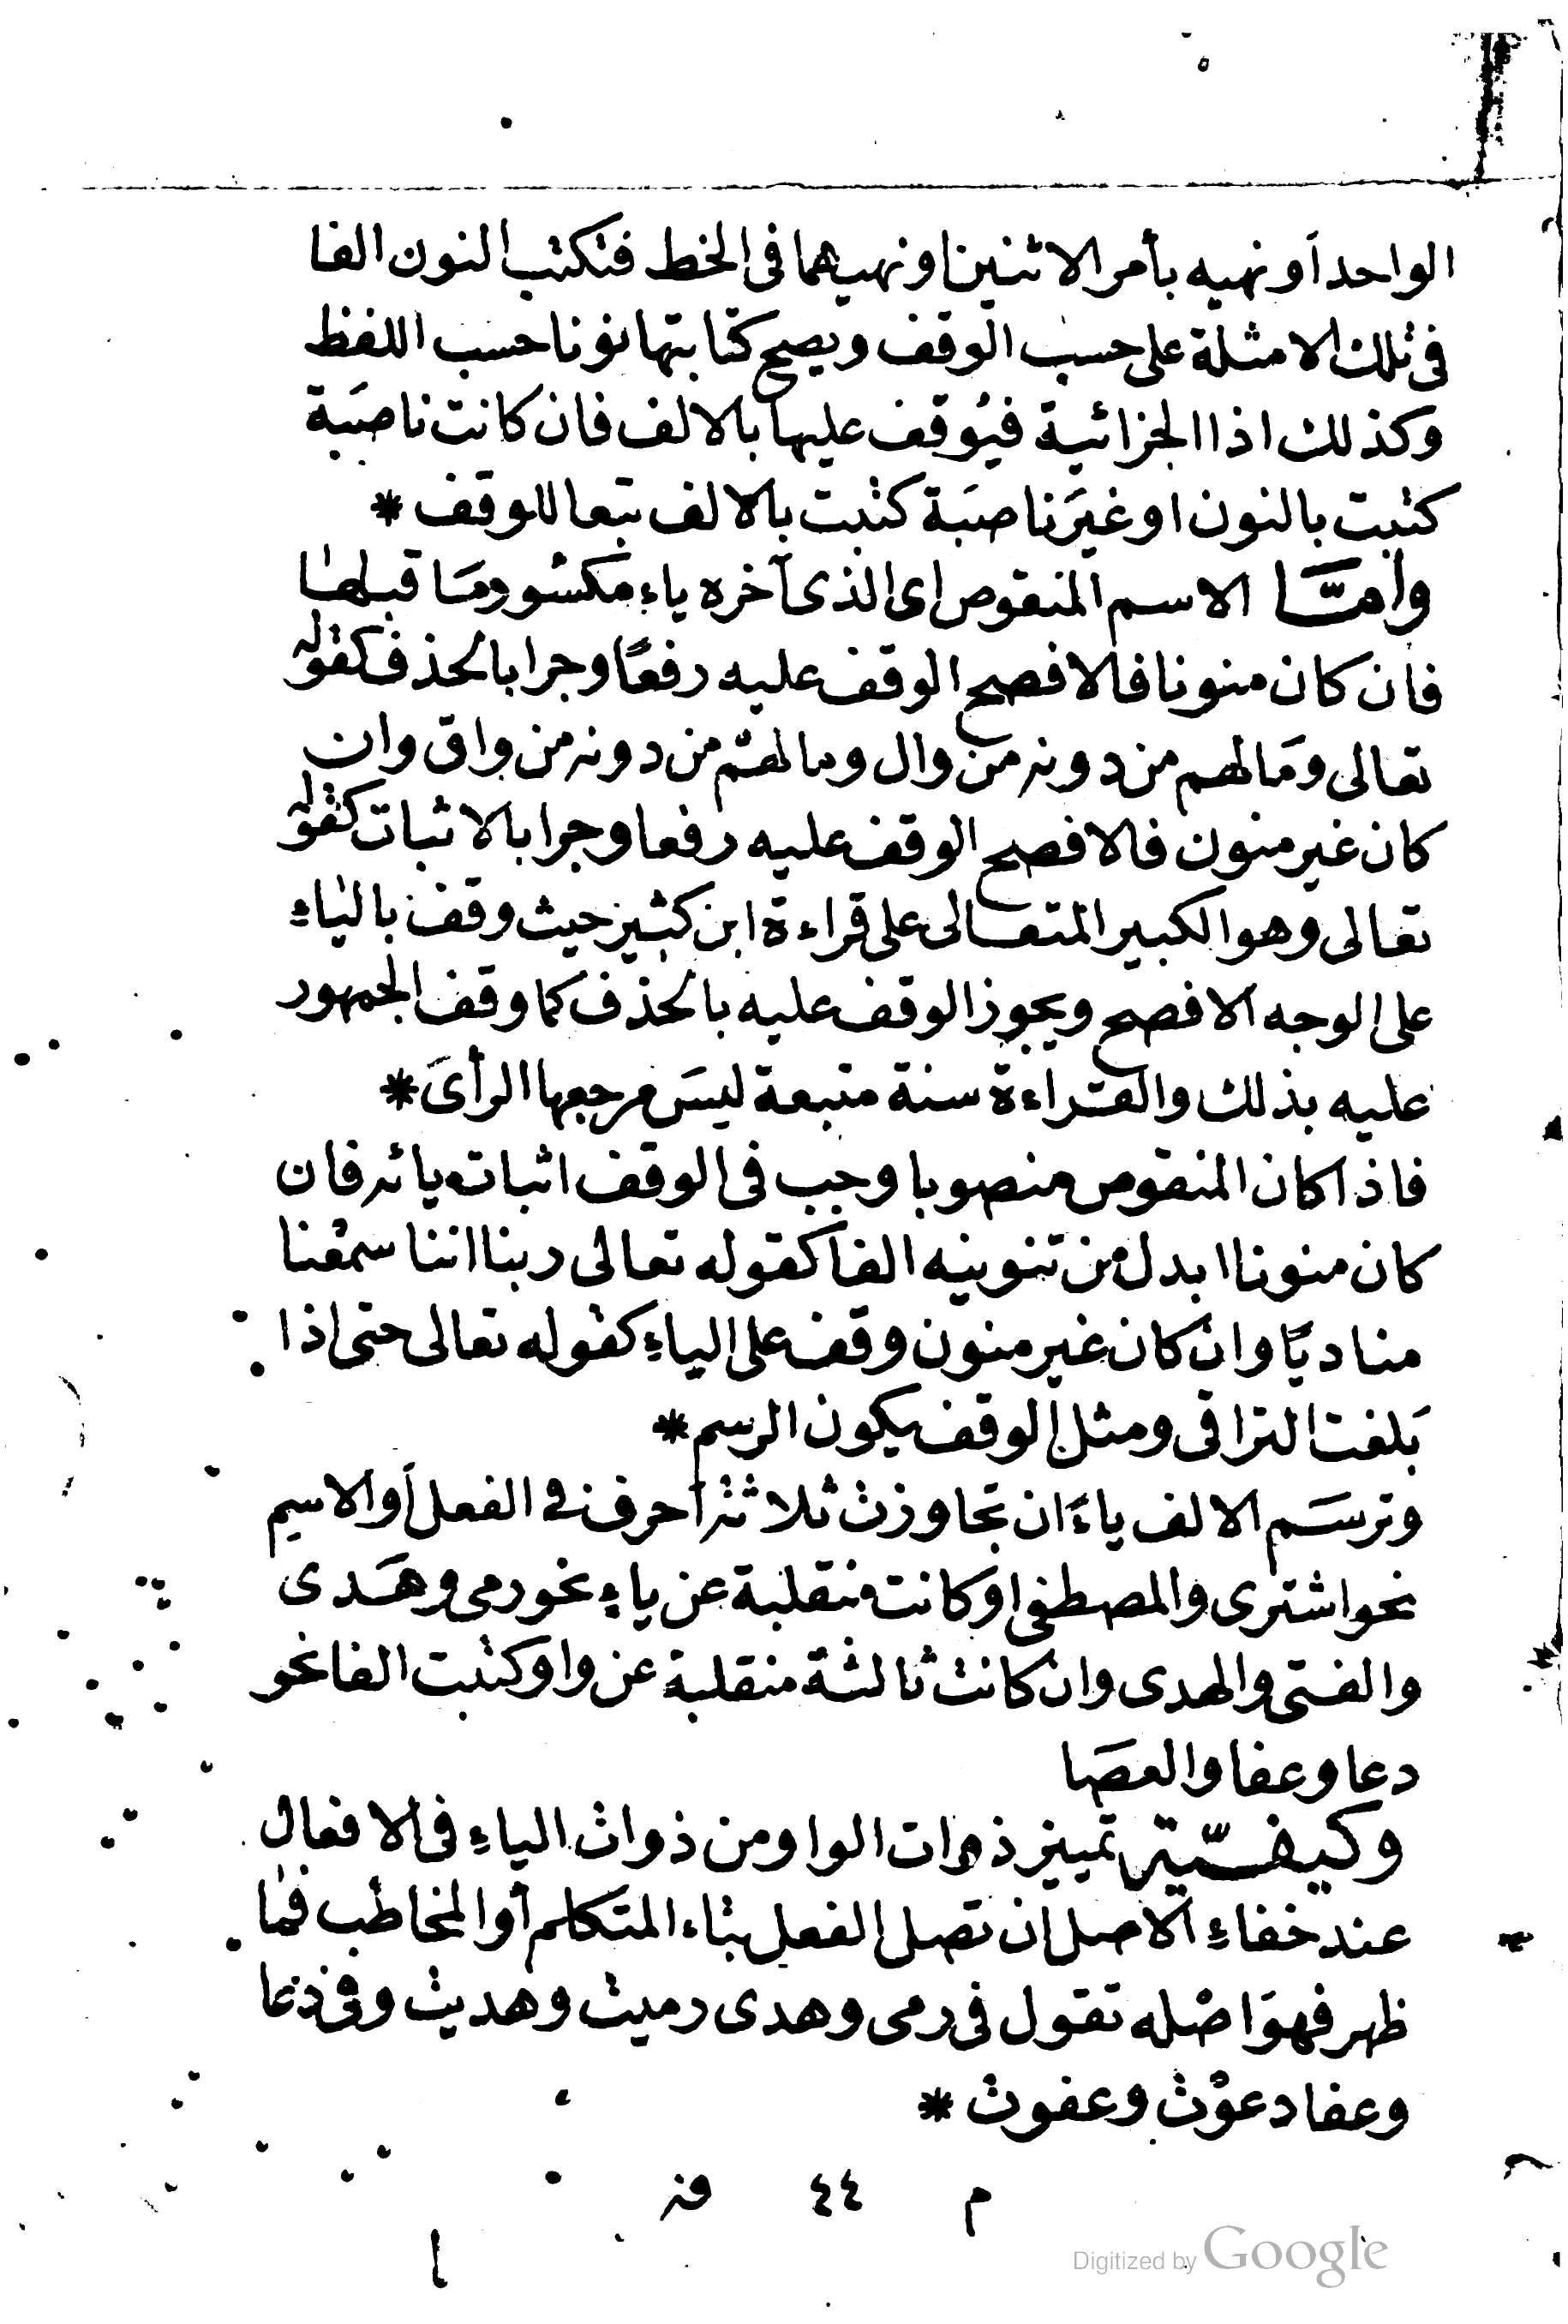 الواحد أو نهيه بأمر الاثنين او نهيهما فى الخط فتكتب النون الفا
فى تلك الامثلة على حسب الوقف ويصح كتابتها نونا حسب اللفظ
وكذلك اذا الجزائية فيُوقف عليها بالالف فان كانت ناصَبة
كتبت بالنون او غيَر ناصبَة كتبت بالالف تبعا للوقف *
وأمَّا الاسم المنقوص اى الذى آخره ياء مكسُور مَا قبلها
فان كان منونا فالافصح الوقف عليه رفعًا وجرا بالحذف كقوله
تعالى ومَا لهم من دونه من وال وما لهم من دونه من واق وان
كان غير منون فالافصح الوقف عليه رفعا وجرا بالاثبات كقوله
تعالى وهو الكبير المتعالى على قراءة ابن كثير حيث وقف بالياءِ
على الوجه الافصح ويجوز الوقف عليه بالحذف كما وقف الجمهور
عليه بذلك والقراءة سنة متبعة ليسَ مرجعها الرأىَ *
فاذا كان المنقوص منصوبا وجب فى الوقف اثباته يائه فان
كان منونا ابدل من تنوينه الفا كقوله تعالى ربنا اننا سمعْنا
مناديًا وان كان غير منون وقف على الياءِ كقوله تعالى حتى اذا
بَلغت التراقى ومثل الوقف يكون الرسم *
وترسَم الالف ياءً ان تجاوزت ثلاثة أحرف فى الفعل أو الاسِم
نحو اشترى والمصطفى او كانت منقلبة عن ياءٍ نحو رمى وهَدى
والفتى والهدى وان كانت ثالثة منقلبة عن واو كتبت الفا نحو
دعا وعفا والعصَا
وكيفيّة تمييز ذوات الواو من ذوات الياءِ فى الافعال
عند خفاءِ الاصل ان تصل الفعل بتاء المتكلم أو المخاطب فمَا
ظهر فهوَ اصْله تقول فى رمى وهدى رميت وهديت وفى دعا
وعفا دعوْت وعفوت *
م ٤٤ فز
Digitized by Google